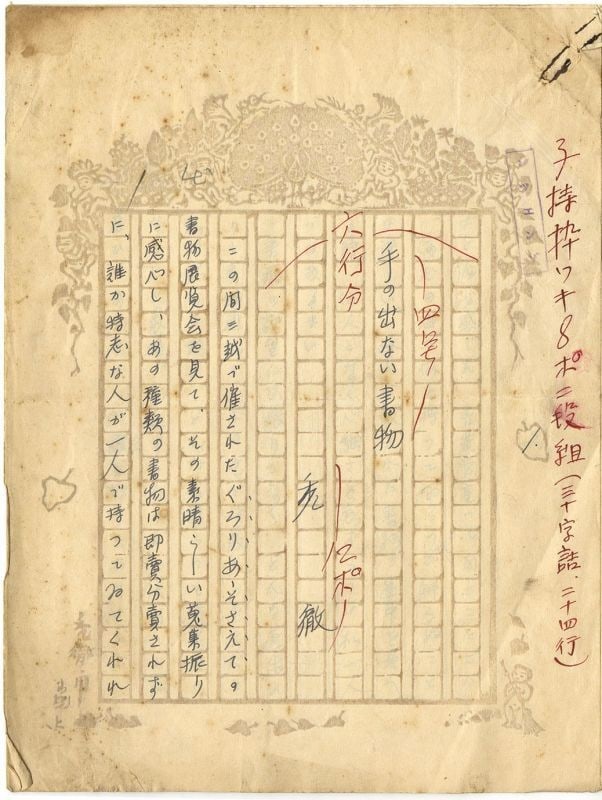 子持枠ワキ8ポ二段組(三十字詰、二十四行)
四号
手の出ない書物
六行分
禿 徹
12ポ
この間三越で催されたぐろりあ・そさえての
書物展覧会を見て、その素晴らしい蒐集振り
に感心し、あの種類の書物は即賣分賣されず
に、誰か特志な人が一人で持つてゐてくれれ